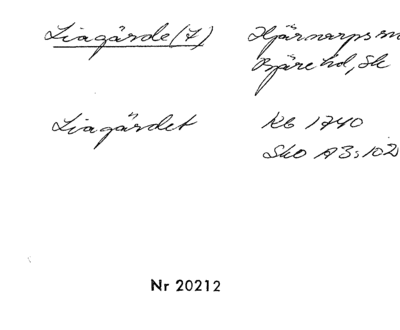 Liagärde (7) Hjärnarps sn
Bjäre hd, Sk
Liagärdet Kb 1740
Sko A3:102
Nr 20212